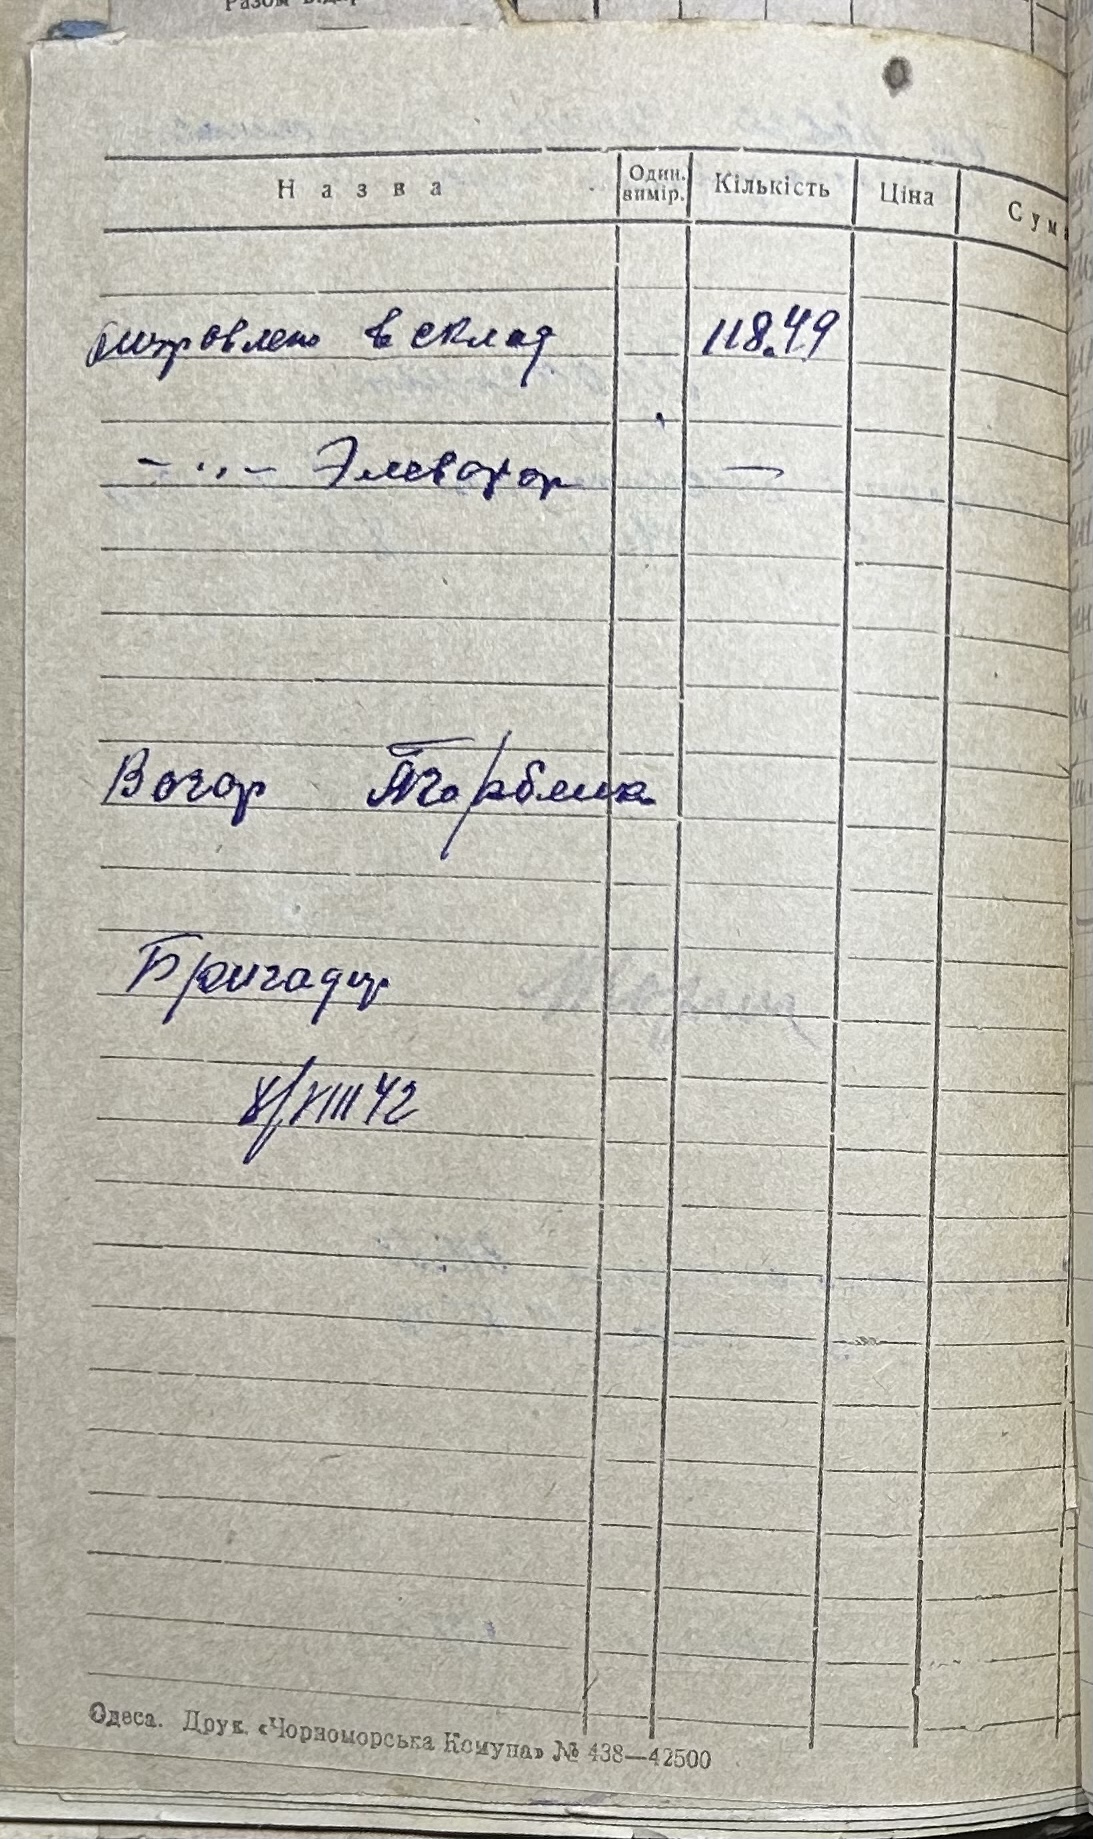 Назва Один. вимір. Кількість Ціна Сум
отправлено в склад 118.49
– ,, – Элеватор —
Вагар
Бригадир
8/VIII 42
Одеса. Друк. «Чорноморська Комуна» № 438—42500